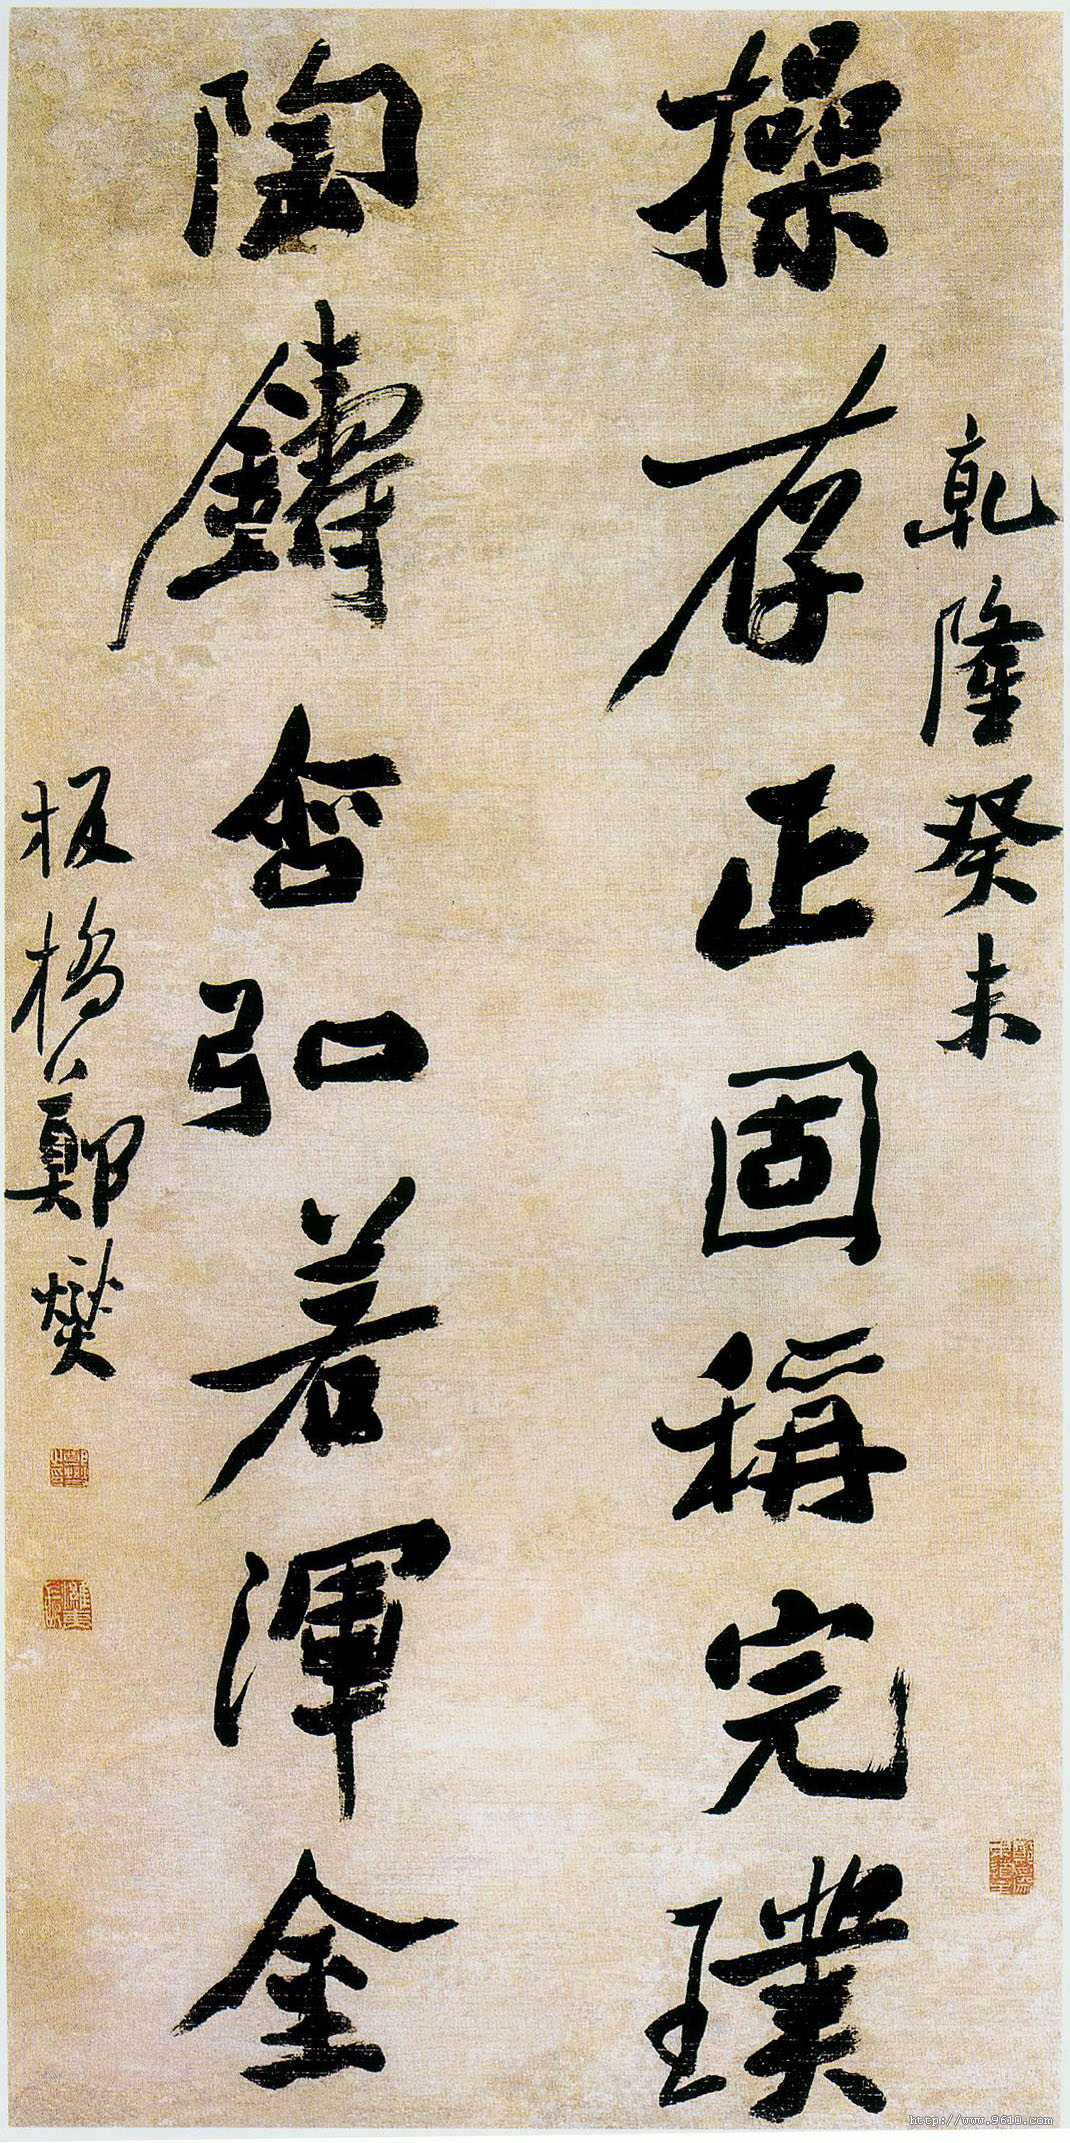 乾隆癸未
操存正固稱完璞
陶鑄含弘若渾金
板橋鄭燮
http://www.9610.com